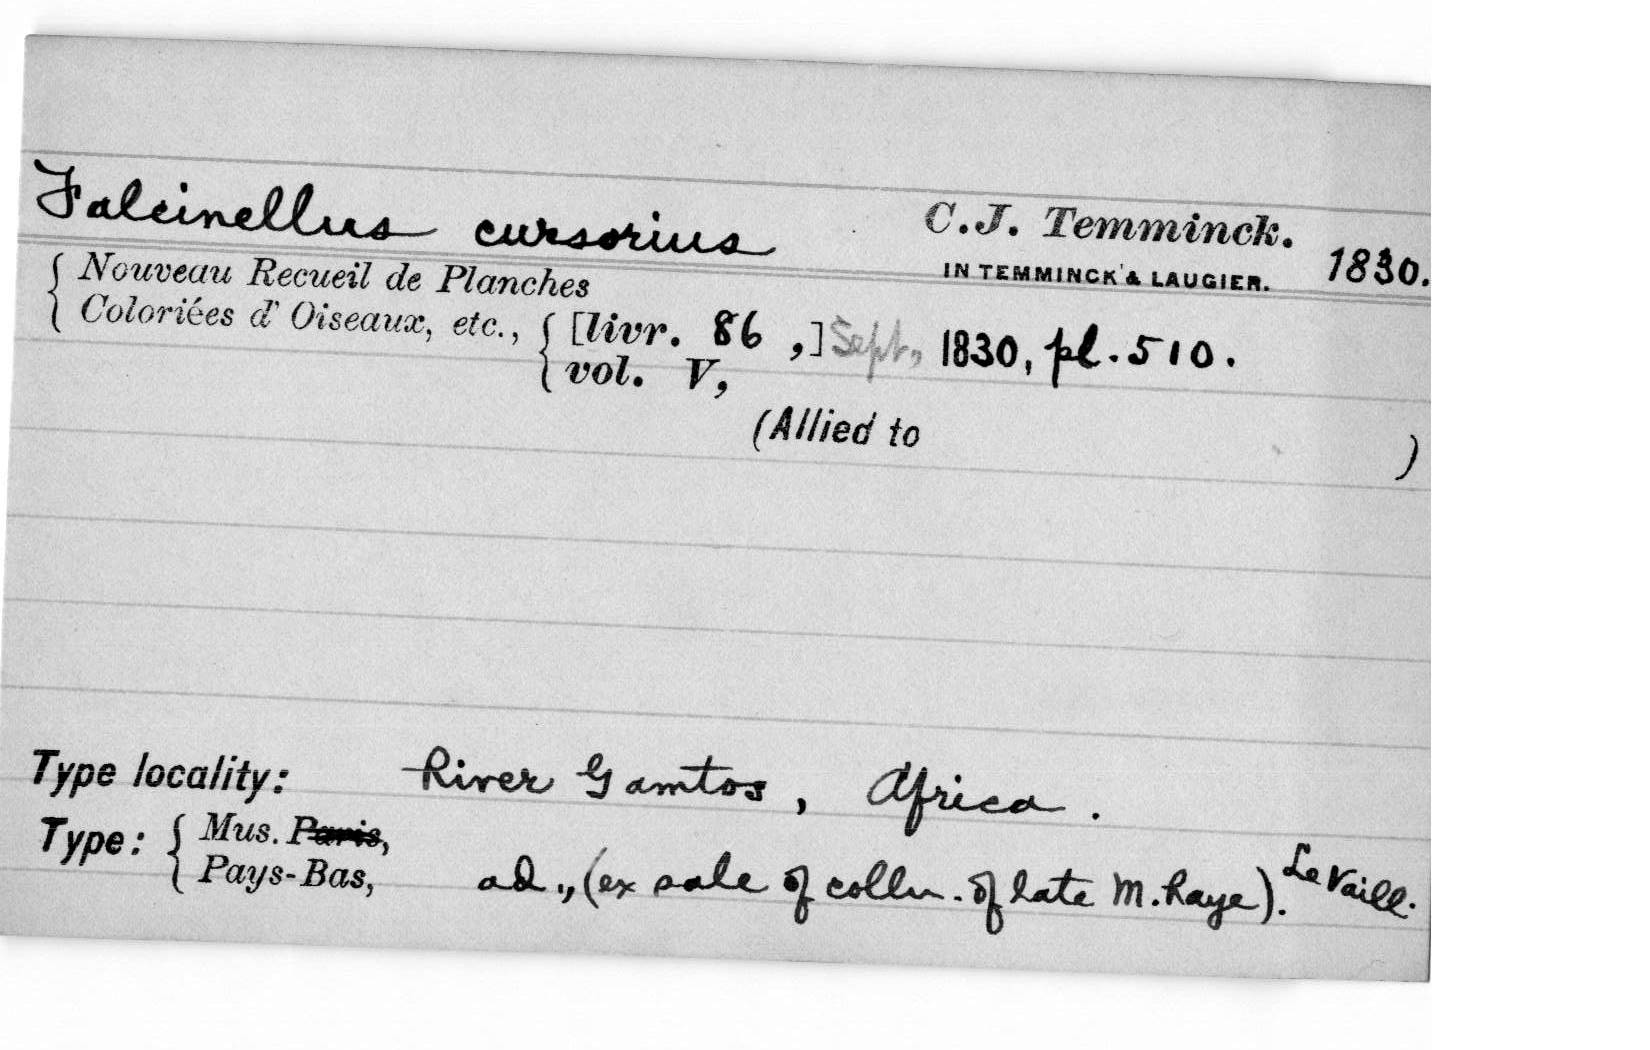 Falcinellus cursorius C.J. Temminck. 1830.
IN TEMMINCK & LAUGIER.
Nouveau Recueil de Planches
Coloriées d' Oiseaux, etc., [livr. 86 ,] Sept., 1830, pl. 510.
vol. V,
(Allied to )
Type locality: River Gamtos, Africa.
Type: Mus. Paris,
Pays-Bas, ad., (ex sale of colln. of late M. Raye). Le Vaill.